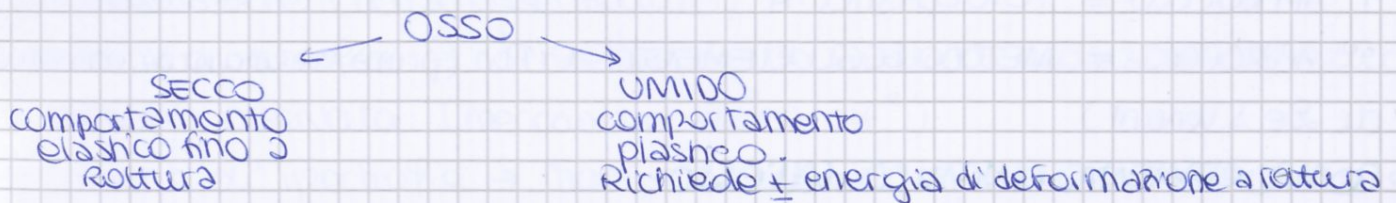 OSSO
SECCO
comportamento
elastico fino a
Rottura
UMIDO
comportamento
plastico.
Richiede ± energia di deformazione a rottura